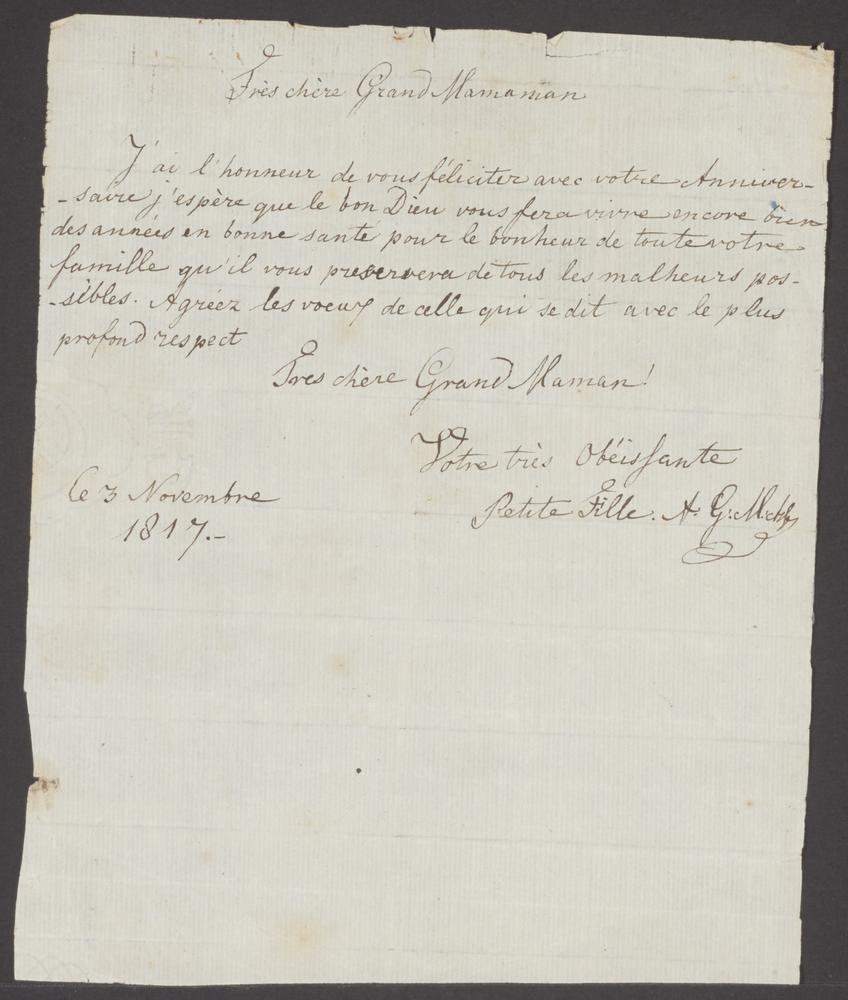 Très chère Grand Mamaman
J'ai l'honneur de vous féliciter avec votre Anniver-
-saire j'espère que le bon Dieu vous fera vivre encore bien
des années en bonne santé pour le bonheur de toute votre
famille qu'il vous preservera de tous les malheurs pos-
-sibles. Agréez les voeux de celle qui se dit avec le plus
profond respect
Tres chère Grand Maman!
Votre très Obéissante
Petite Fille. A. G:
le 3 Novembre
1817.-